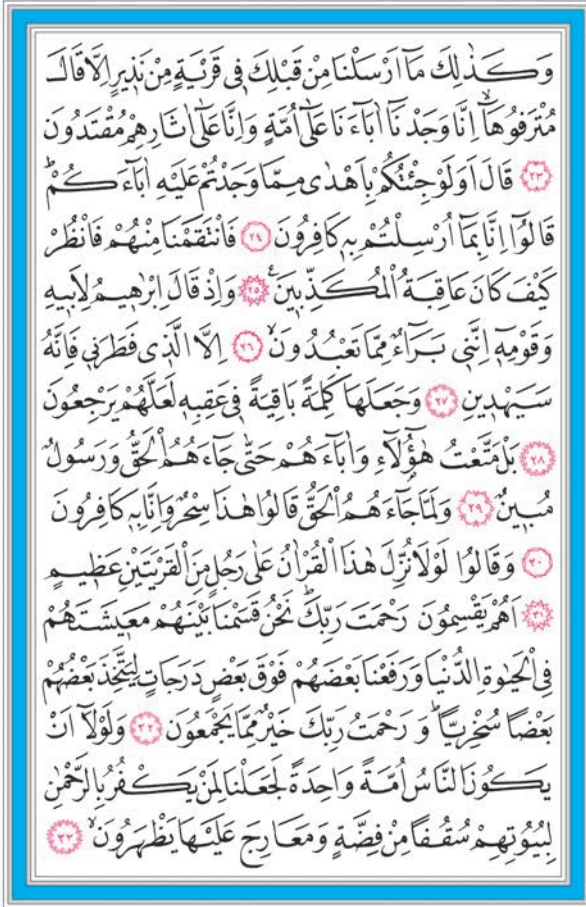 وَكَذٰلِكَ مَٓا اَرْسَلْنَا مِنْ قَبْلِكَ فٖى قَرْيَةٍ مِنْ نَذٖيرٍ اِلَّا قَالَ
مُتْرَفُوهَٓاۙ اِنَّا وَجَدْنَٓا اٰبَٓاءَنَا عَلٰٓى اُمَّةٍ وَاِنَّا عَلٰٓى اٰثَارِهِمْ مُقْتَدُونَ
﴿٢٣﴾ قَالَ اَوَلَوْ جِئْتُكُمْ بِاَهْدٰى مِمَّا وَجَدْتُمْ عَلَيْهِ اٰبَٓاءَكُمْؕ
قَالُٓوا اِنَّا بِمَٓا اُرْسِلْتُمْ بِهٖ كَافِرُونَ ﴿٢٤﴾ فَانْتَقَمْنَا مِنْهُمْ فَانْظُرْ
كَيْفَ كَانَ عَاقِبَةُ الْمُكَذِّبٖينَ ﴿٢٥﴾ وَاِذْ قَالَ اِبْرٰهٖيمُ لِاَبٖيهِ
وَقَوْمِهٖٓ اِنَّنٖى بَرَٓاءٌ مِمَّا تَعْبُدُونَۙ ﴿٢٦﴾ اِلَّا الَّذٖى فَطَرَنٖى فَاِنَّهُ
سَيَهْدٖينِ ﴿٢٧﴾ وَجَعَلَهَا كَلِمَةً بَاقِيَةً فٖى عَقِبِهٖ لَعَلَّهُمْ يَرْجِعُونَ
﴿٢٨﴾ بَلْ مَتَّعْتُ هٰٓؤُ۬لَٓاءِ وَاٰبَٓاءَهُمْ حَتّٰى جَٓاءَهُمُ الْحَقُّ وَرَسُولٌ
مُبٖينٌ ﴿٢٩﴾ وَلَمَّا جَٓاءَهُمُ الْحَقُّ قَالُوا هٰذَا سِحْرٌ وَاِنَّا بِهٖ كَافِرُونَ
﴿٣٠﴾ وَقَالُوا لَوْلَا نُزِّلَ هٰذَا الْقُرْاٰنُ عَلٰى رَجُلٍ مِنَ الْقَرْيَتَيْنِ عَظٖيمٍ
﴿٣١﴾ اَهُمْ يَقْسِمُونَ رَحْمَتَ رَبِّكَؕ نَحْنُ قَسَمْنَا بَيْنَهُمْ مَعٖيشَتَهُمْ
فِى الْحَيٰوةِ الدُّنْيَا وَرَفَعْنَا بَعْضَهُمْ فَوْقَ بَعْضٍ دَرَجَاتٍ لِيَتَّخِذَ بَعْضُهُمْ
بَعْضًا سُخْرِيًّاؕ وَرَحْمَتُ رَبِّكَ خَيْرٌ مِمَّا يَجْمَعُونَ ﴿٣٢﴾ وَلَوْلَٓا اَنْ
يَكُونَ النَّاسُ اُمَّةً وَاحِدَةً لَجَعَلْنَا لِمَنْ يَكْفُرُ بِالرَّحْمٰنِ
لِبُيُوتِهِمْ سُقُفًا مِنْ فِضَّةٍ وَمَعَارِجَ عَلَيْهَا يَظْهَرُونَۙ ﴿٣٣﴾